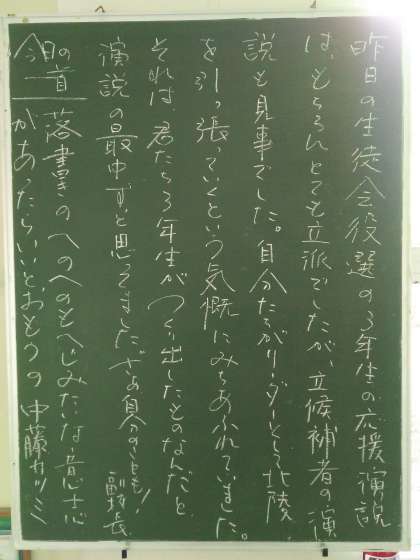 昨日の生徒会役選の3年生の応援演説
は、もちろんとても立派でしたが、立候補者の演
説も見事でした。自分たちがリーダーとして北陵
を引っ張っていくという気慨にみちあふれていました。
それは、君たち3年生がつくり出したものなんだと
演説の最中ずっと思ってました。ざぁ自分のことも!
副校長
今日の一首
落書きのへのへのもへじみたいな意志
があったらいいとおもうの 中藤カツミ